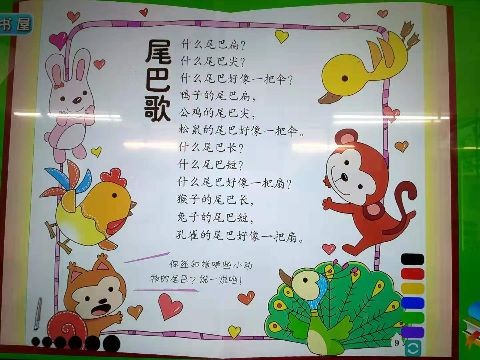 书屋
尾巴歌
什么尾巴扁？
什么尾巴尖？
什么尾巴好像一把伞？
鸭子的尾巴扁，
公鸡的尾巴尖，
松鼠的尾巴好像一把伞。
什么尾巴长？
什么尾巴短？
什么尾巴好像一把扇？
猴子的尾巴长，
兔子的尾巴短，
孔雀的尾巴好像一把扇。
你还知道哪些小动
物的尾巴？说一说吧！
9